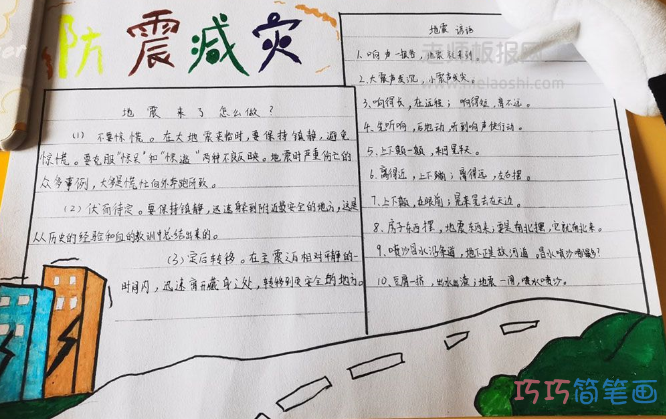 防震减灾
地震来了怎么做?
(1) 不要惊慌。在大地震来临时,要保持镇静,避免
惊慌。要克服"惊呆"和"惊逃"两种不良反映。地震时严重伤亡的
众多事例,大都是慌忙向外奔跑所致。
(2) 伏而待定。要保持镇静,迅速躲到附近最安全的地方,这是
从历史的经验和血的教训中总结出来的。
(3) 震后转移。在主震之后相对平静的一
时间内,迅速离开藏身之处,转移到更安全的地方。
地震谚语
1.响声一报告,地震就来到。
2.大震声发沉,小震声发尖。
3.响得长,在远程;响得短,离不远。
4.先听响,后地动,听到响声快行动。
5.上下颠一颠,来回晃半天。
6.离得近,上下蹦;离得远,左右摆。
7.上下颠,在眼前;晃来晃去在天边。
8.房子东西摆,地震东西来;要是南北摆,它就南北来。
9.喷沙冒水沿条道,地下正是故河道
10.豆腐一挤,出水出渣;地震一闹,喷水喷沙。
老师板报网
elaoshi.com
巧巧简笔画